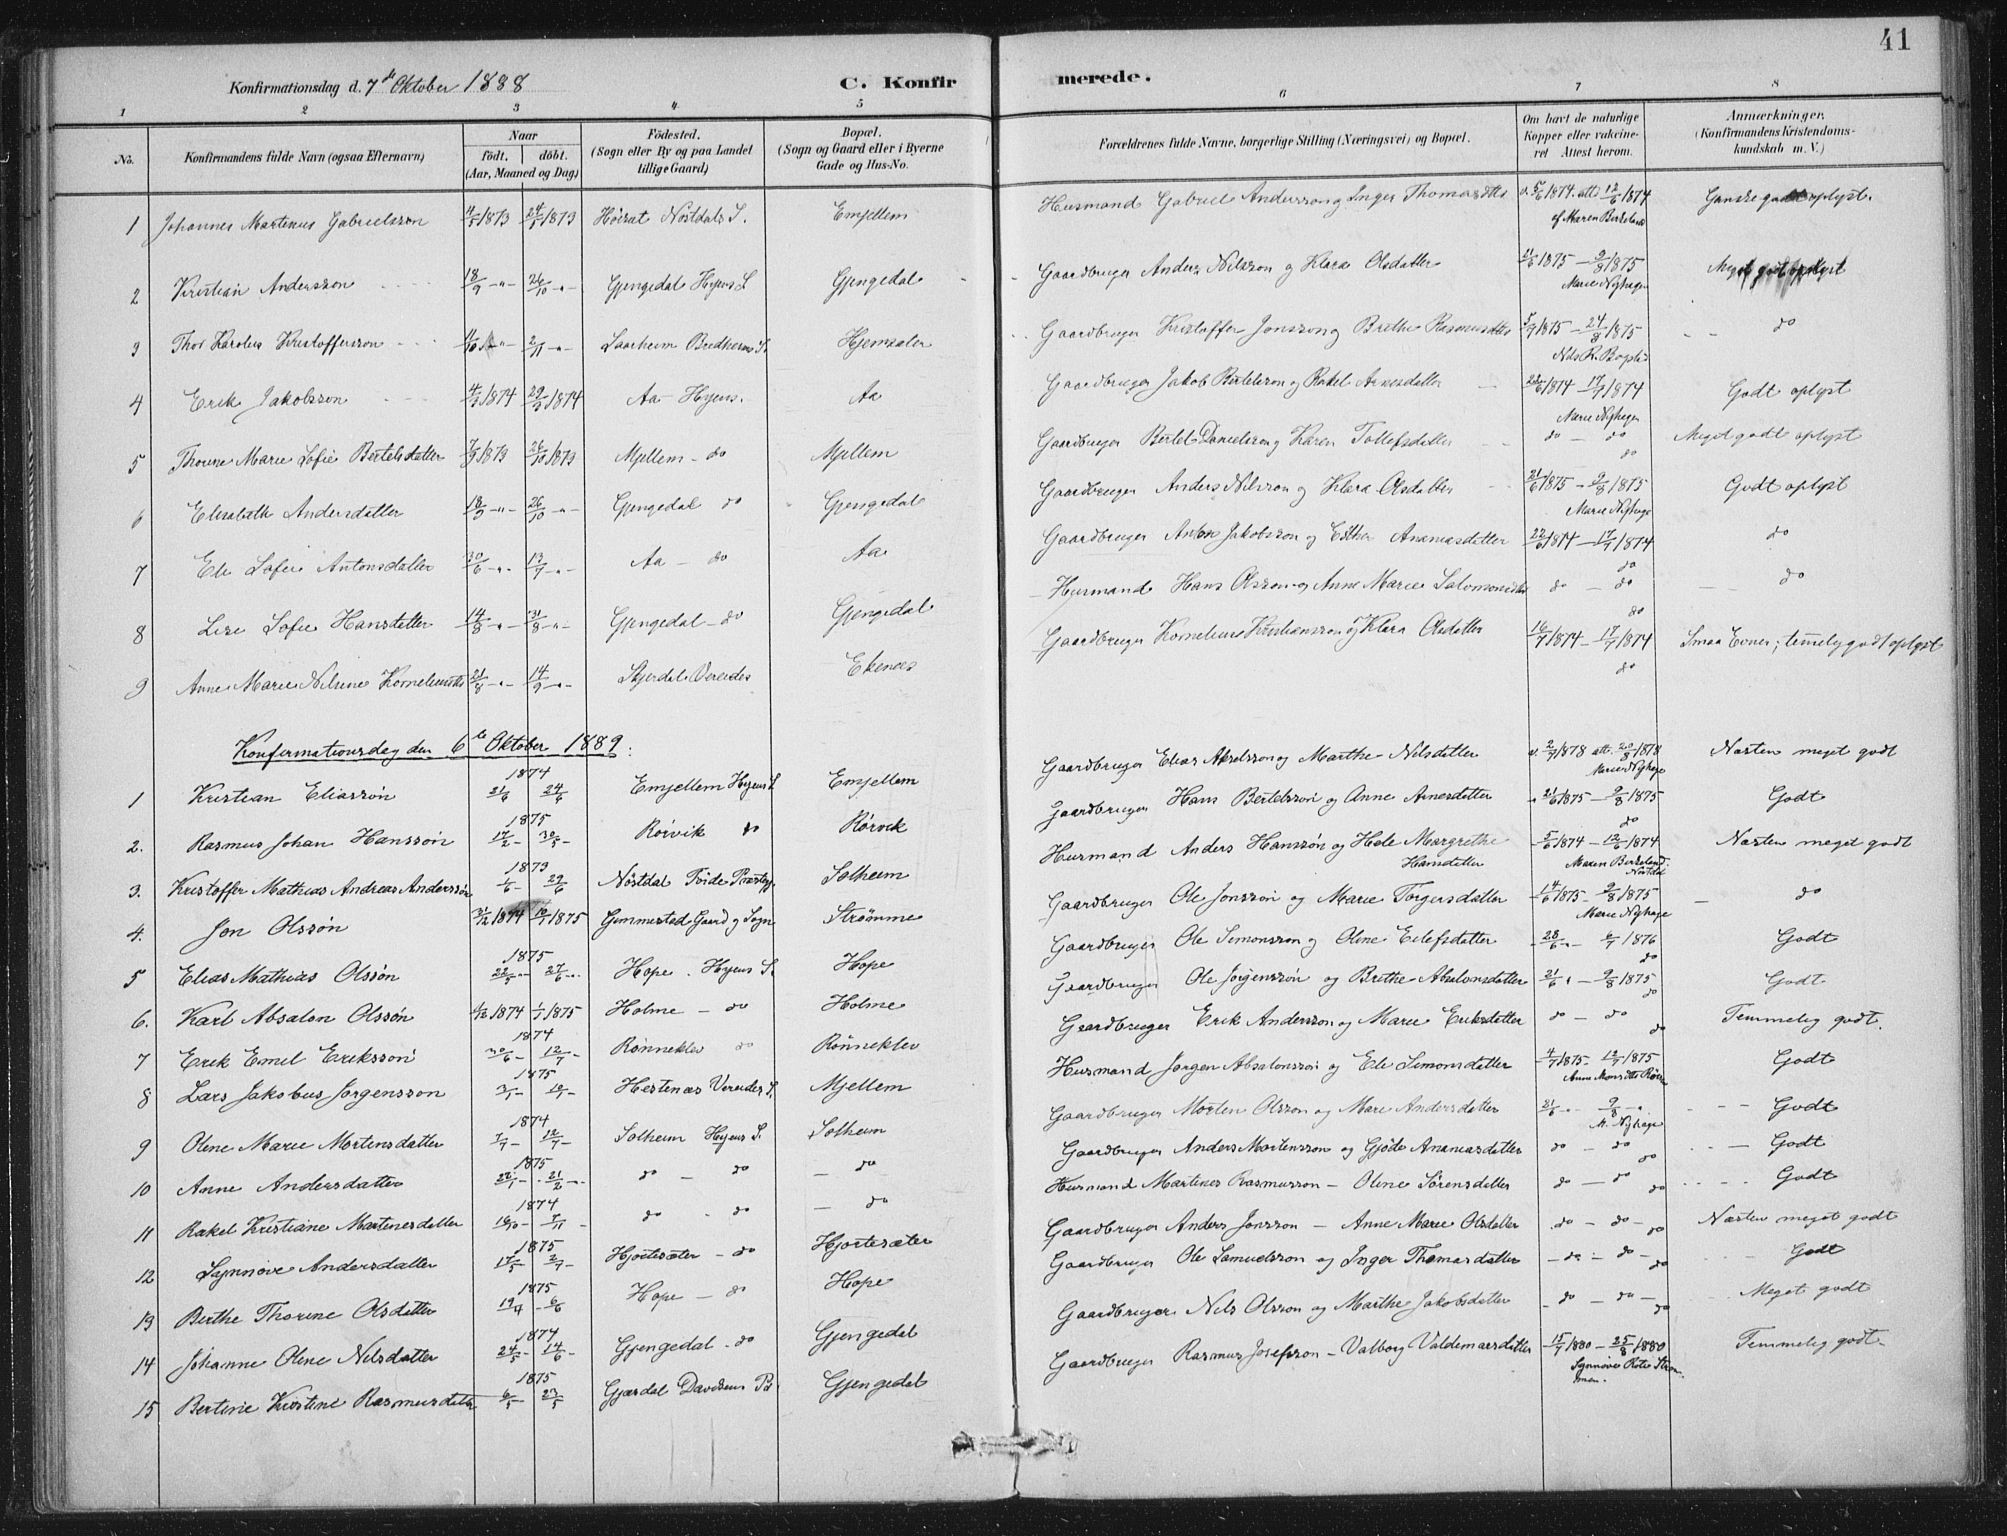 41
Konfirmationsdag d. 7de Oktober 1888
C. Konfirmerede.
1 2 3 4 5 6 7 8
No.
Konfirmandens fulde Navn (ogsaa Efternavn)
Naar
födt. döbt.
(Aar, Maaned og Dag)
Födested.
(Sogn eller By og paa Landet
tillige Gaard)
Bopæl.
(Sogn og Gaard eller i Byerne
Gade og Hus-No.
Forældrenes fulde Navne, borgerlige Stilling (Næringsvei) og Bopæl.
Om havt de naturlige
Kopper eller vakcine-
ret Attest herom.
Anmærkninger.
(Konfirmandens Kristendoms-
kundskab m. V.)
1 Johannes Martinus Gabrielsson 1873 1873 Nøstdals S. Emjellem Husmand Gabriel Anderssøn og Inger Thomasdtr v. 5/6 1874 att 12/6 1874 Ganske godt oplyst.
af Maren Birkeland
2 Kristian Andersson 18/9 -"- 26/10 -"- Gjengedal Hyens S. Gjengedal Gaardbruger Anders Nilsson og Klara Olsdatter 21/6 1875 – 9/8 1875 Meget godt oplyst
Marie Nyhagen
3 Thor Karolus Kristofferson 2/11 -"- Laarheim Bredheims S. Hjemsæter Gaardbruger Kristoffer Jonsson og Brethe Rasmusdtr 1875 – 24/8 1875 do
Nils R.
4 Erik Jakobsson 1874 1874 Aa – Hyens. Aa Gaardbruger Jakob Bertelsson og Rakel Arnesdatter 22/6 1874 – 17/7 1874 Godt oplyst
Marie Nyhagen
5 Thorine Marie Sofie Bertelsdatter 7/9 1873 26/10 1873 Mjellem – do Mjellem Gaardbruger Bertel Danielsson og Karen Tollefsdatter do – do Meget godt oplyst
do
6 Elisabeth Andersdatter 18/9 -"- 26/10 -"- Gjengedal do Gjengedal Gaardbruger Anders Nilsson og Klara Olsdatter 21/6 1875 – 9/8 1875 Godt oplyst
Marie Nyhage
7 Eli Sofie Antonsdatter 30/6 -"- 13/7 -"- Aa – do Aa Gaardbruger Anton Jakobsson og Esther Ananiasdatter 22/6 1874 – 17/7 1874 do
do
8 Lise Sofie Hansdatter 14/8 -"- 31/8 -"- Gjengedal – do Gjengedal Husmand Hans Olsson og Anne Marie Salomonsdtr do – do do
do
9 Anne Marie Nilsine Korneliusdtr 21/8 -"- 14/9 -"- Skjerdal Vereides Ekenæs Gaardbruger Kornelius Kristiansson og Klara Olsdatter 16/7 1874 – 17/7 1874 Smaa Evner; temmelig godt oplyst
do
Konfirmationsdag den 6te Oktober 1889:
1 Kristian Eliassøn 1874 21/6 24/6 Emjellem Hyens S. Emjellem Gaardbruger Elias Akselsson og Marthe Nilsdatter v. 2/7 1878 att. 20/8 1878 Næsten meget godt
Marie Nyhage
2. Rasmus Johan Hanssøn 1875 17/2 – 30/5 – Rörvik do Rörvik Gaardbruger Hans Bertelssön og Anne Arnesdatter 21/6 1875 – 9/8 1875 Godt
do
3. Kristoffer Mathias Andreas Anderssøn 1873 29/6 Nöstdal Solheim Husmand Anders Hanssön og Hele Margrethe Hansdatter 5/6 1874 – 12/6 1874 Næsten meget godt
Maren Birkeland Nöstdal
4. Jon Olssøn 31/12 1874 10/1 1875 Gimmestad Gaard og Sogn Strømme Gaardbruger Ole Jonssön og Marie Torgersdatter 14/6 1875 – 9/8 1875 do
Marie Nyhage
5 Elias Mathias Olssøn 1875 22/5 – 27/6 – Hope. Hyens S. Hope Gaardbruger Ole Simonsson og Oline Eilefsdatter 28/6 – 6/7 1876 Godt
do
6. Karl Absalon Olssøn 1874 1875 Holme – do Holme Gaardbruger Ole Jörgenssön og Brethe Absalonsdatter 21/6 – 9/8 1875 Godt
do
7 Erik Emil Erikssøn 1874 30/6 – 12/7 – Rönneklev do Rönneklev Gaardbruger Erik Andersson og Marie Eriksdatter do – do Temmelig godt.
do
8 Lars Jakobus Jørgensson 1875 Hestenæs Vereides S. Mjellem Husmand Jørgen Absalonssön og Eli Simonsdatter 4/7 1875 – 12/7 1875 Godt
9 Oline Marie Mortensdatter 1874 7/7 – 12/7 – Solheim Hyens S. Solheim Gaardbruger Morten Olsson og Mari Andersdatter 21/6 – 9/8 – Godt
M. Nyhage
10 Anne Andersdatter 1875 22/1 – 21/2 do do do Gaardbruger Anders Mortensson og Gjöde Ananiasdatter do – do Godt
do
11 Rakel Kristiane Martinesdatter 1874 16/10 – 7/11 – do do do Husmand Martines Rasmusson – Oline Sörensdatter do – do Godt
do
12 Synnöve Andersdatter 1875 17/5 – 2/7 – Hjortesæter – do Hjortesæter Gaardbruger Anders Jonsson – Anne Marie Olsdatter do – do – Næsten meget godt
do
13 Berthe Thorine Olsdatter 1875 19/4 – 6/6 Hope – do Hope Gaardbruger Ole Samuelsson og Inger Thomasdatter do – do – Godt
do
14 Johanne Oline Nilsdatter 1874 24/5 – 14/6 – Gjengedal – do Gjengedal Gaardbruger Nils Olsson og Marthe Jakobsdatter do – do – Meget godt
do
15 Bertine Kristine Rasmusdatter 1875 6/5 – 23/5 Gjærdal Davikens Gjengedal Gaardbruger Rasmus Josefsson – Valborg Valdemarsdatter 15/7 1880 – 25/8 1880 Temmelig godt